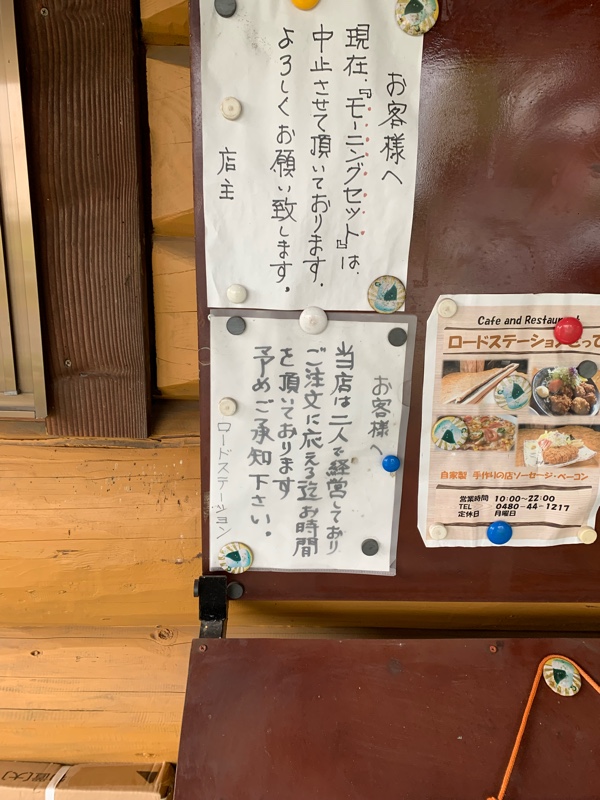 お客様へ
現在.『モーニングセット』は.
中止させて頂いております.
よろしくお願い致します。
店主
お客様へ
当店は二人で経営しており
ご注文に応える迄お時間
を頂いております
予めご承知下さい。
ロードステーション
Cafe and Restaurant
ロードステーション
自家製 手作りの店ソーセージ・ベーコン
営業時間 10:00~22:00
TEL 0480-44-1217
定休日 月曜日